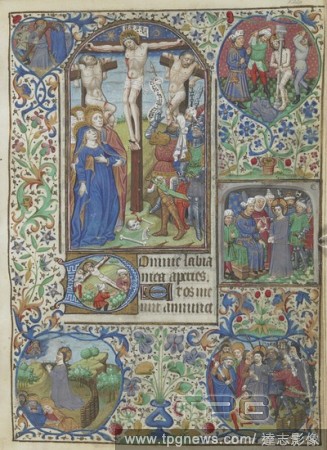 Domine labia
mea aperies.
Et os me
TPG
www.tpgnews.com/ 達志影像